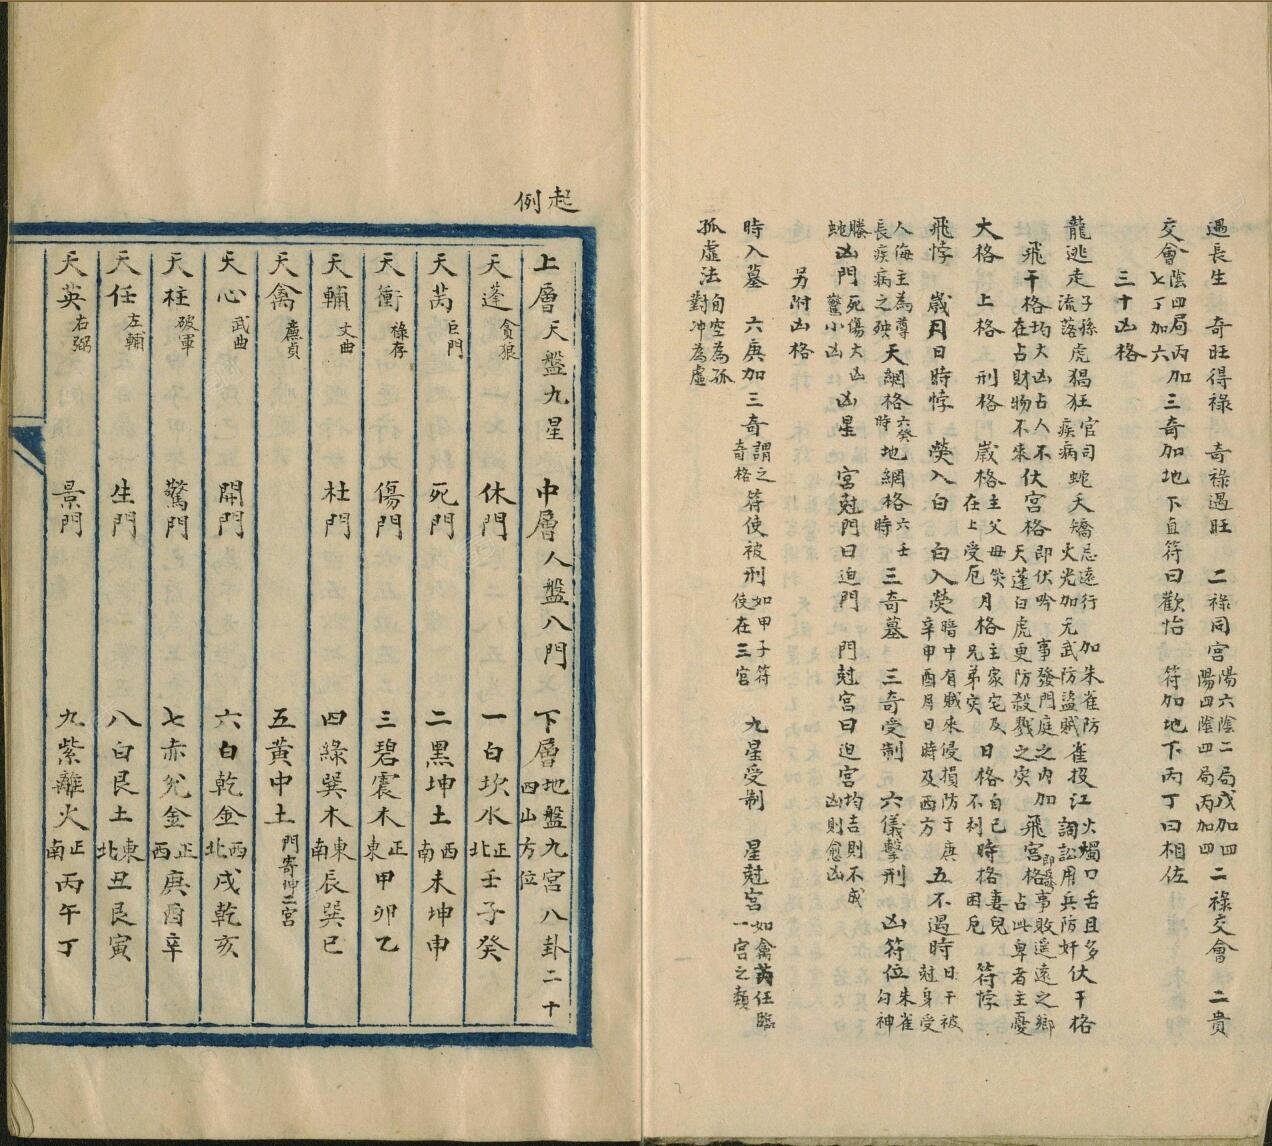 遇長生　奇旺得祿　奇祿遇旺　二祿同宮陽六陰二局戊加四陽四陰四局丙加四二祿交會　二貴
交會陰四局丙加七丁加六三奇加地下直符曰歡怡　符加地下丙丁曰相佐
三十凶格
龍逃走子孫流落虎猖狂官司疾病蛇夭矯忌遠行火光加朱雀防加元武防盜賊雀投江火燭口舌且多詞訟用兵防奸伏干格
飛干格均大凶占人不在占財物不來伏宮格即伏吟事發門庭之內加天蓬白虎更防殺戮之灾飛宮格事敗遥遠之鄉占此卑者主憂
大格　上格　刑格　歲格主父母灾在上受厄月格主家宅及兄弟灾日格自己不利時格妻兒困厄　符悖
飛悖　歲月日時悖　熒入白　白入熒暗中有賊來侵損防于庚辛申酉月日時及西方五不遇時日干被尅身受
人侮主為尊長疾病之殃天網格六癸時地網格六壬時三奇墓　三奇受制　六儀擊刑　凶符位朱雀勾神
螣蛇凶門死傷大凶驚小凶凶星　宮尅門曰迫門　門尅宮曰迫宮均吉則不成凶則愈凶
另附凶格
時入墓　六庚加三奇謂之奇格符使被刑如甲子符使在三宮　九星受制　星尅宮如禽芮任臨一宮之類
孤虛法旬空為孤對冲為虛
起例
上層天盤九星　中層人盤八門　下層地盤九宮八卦二十四山方位
天蓬貪狼　休門　一白坎水正北壬子癸
天芮巨門　死門　二黑坤土西南未坤申
天衝祿存　傷門　三碧震木正東甲卯乙
天輔文曲　杜門　四綠巽木東南辰巽巳
天禽廉貞　五黃中土門寄坤二宮
天心武曲　開門　六白乾金西北戌乾亥
天柱破軍　驚門　七赤兌金正西庚酉辛
天任左輔　生門　八白艮土東北丑艮寅
天英右弼　景門　九紫離火正南丙午丁